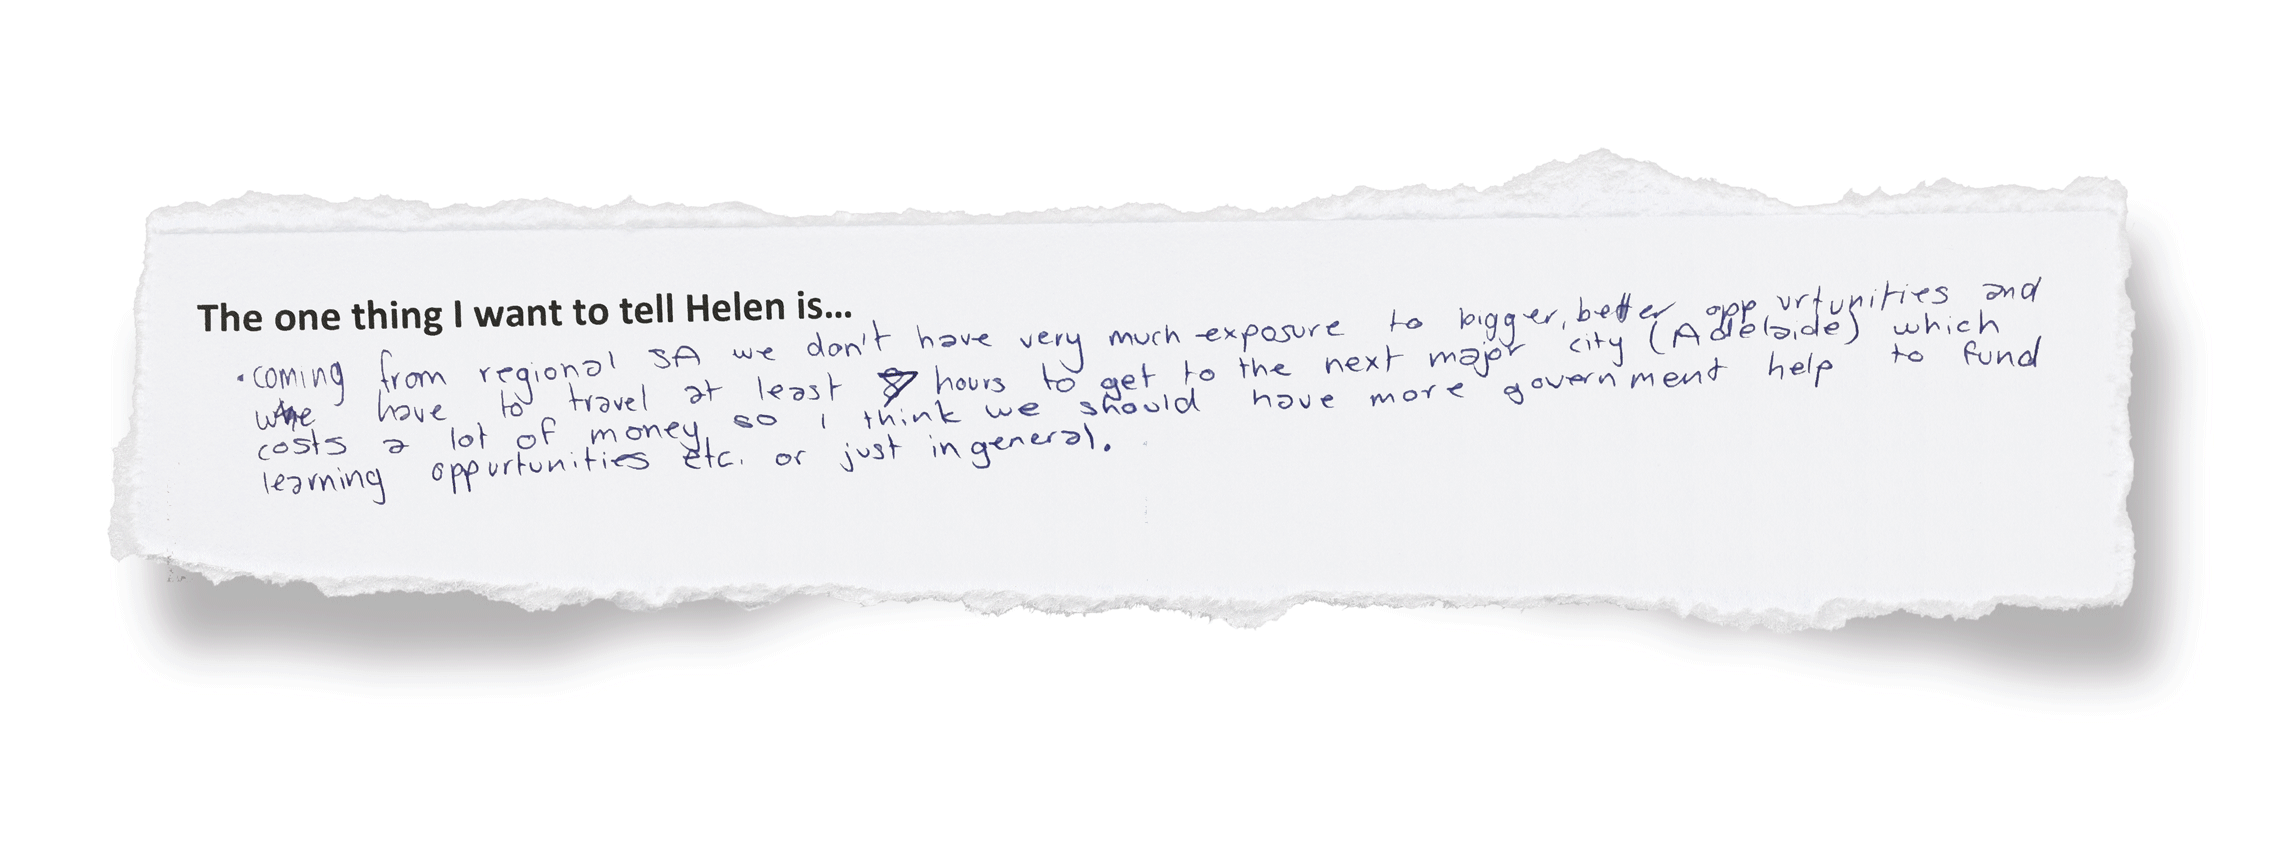 The one thing I want to tell Helen is...
• coming from regional SA we don't have very much exposure to bigger, better oppurtunities and
we have to travel at least hours to get to the next major city (Adelaide) which
costs a lot of money so I think we should have more government help to fund
learning oppurtunities etc. or just in general.